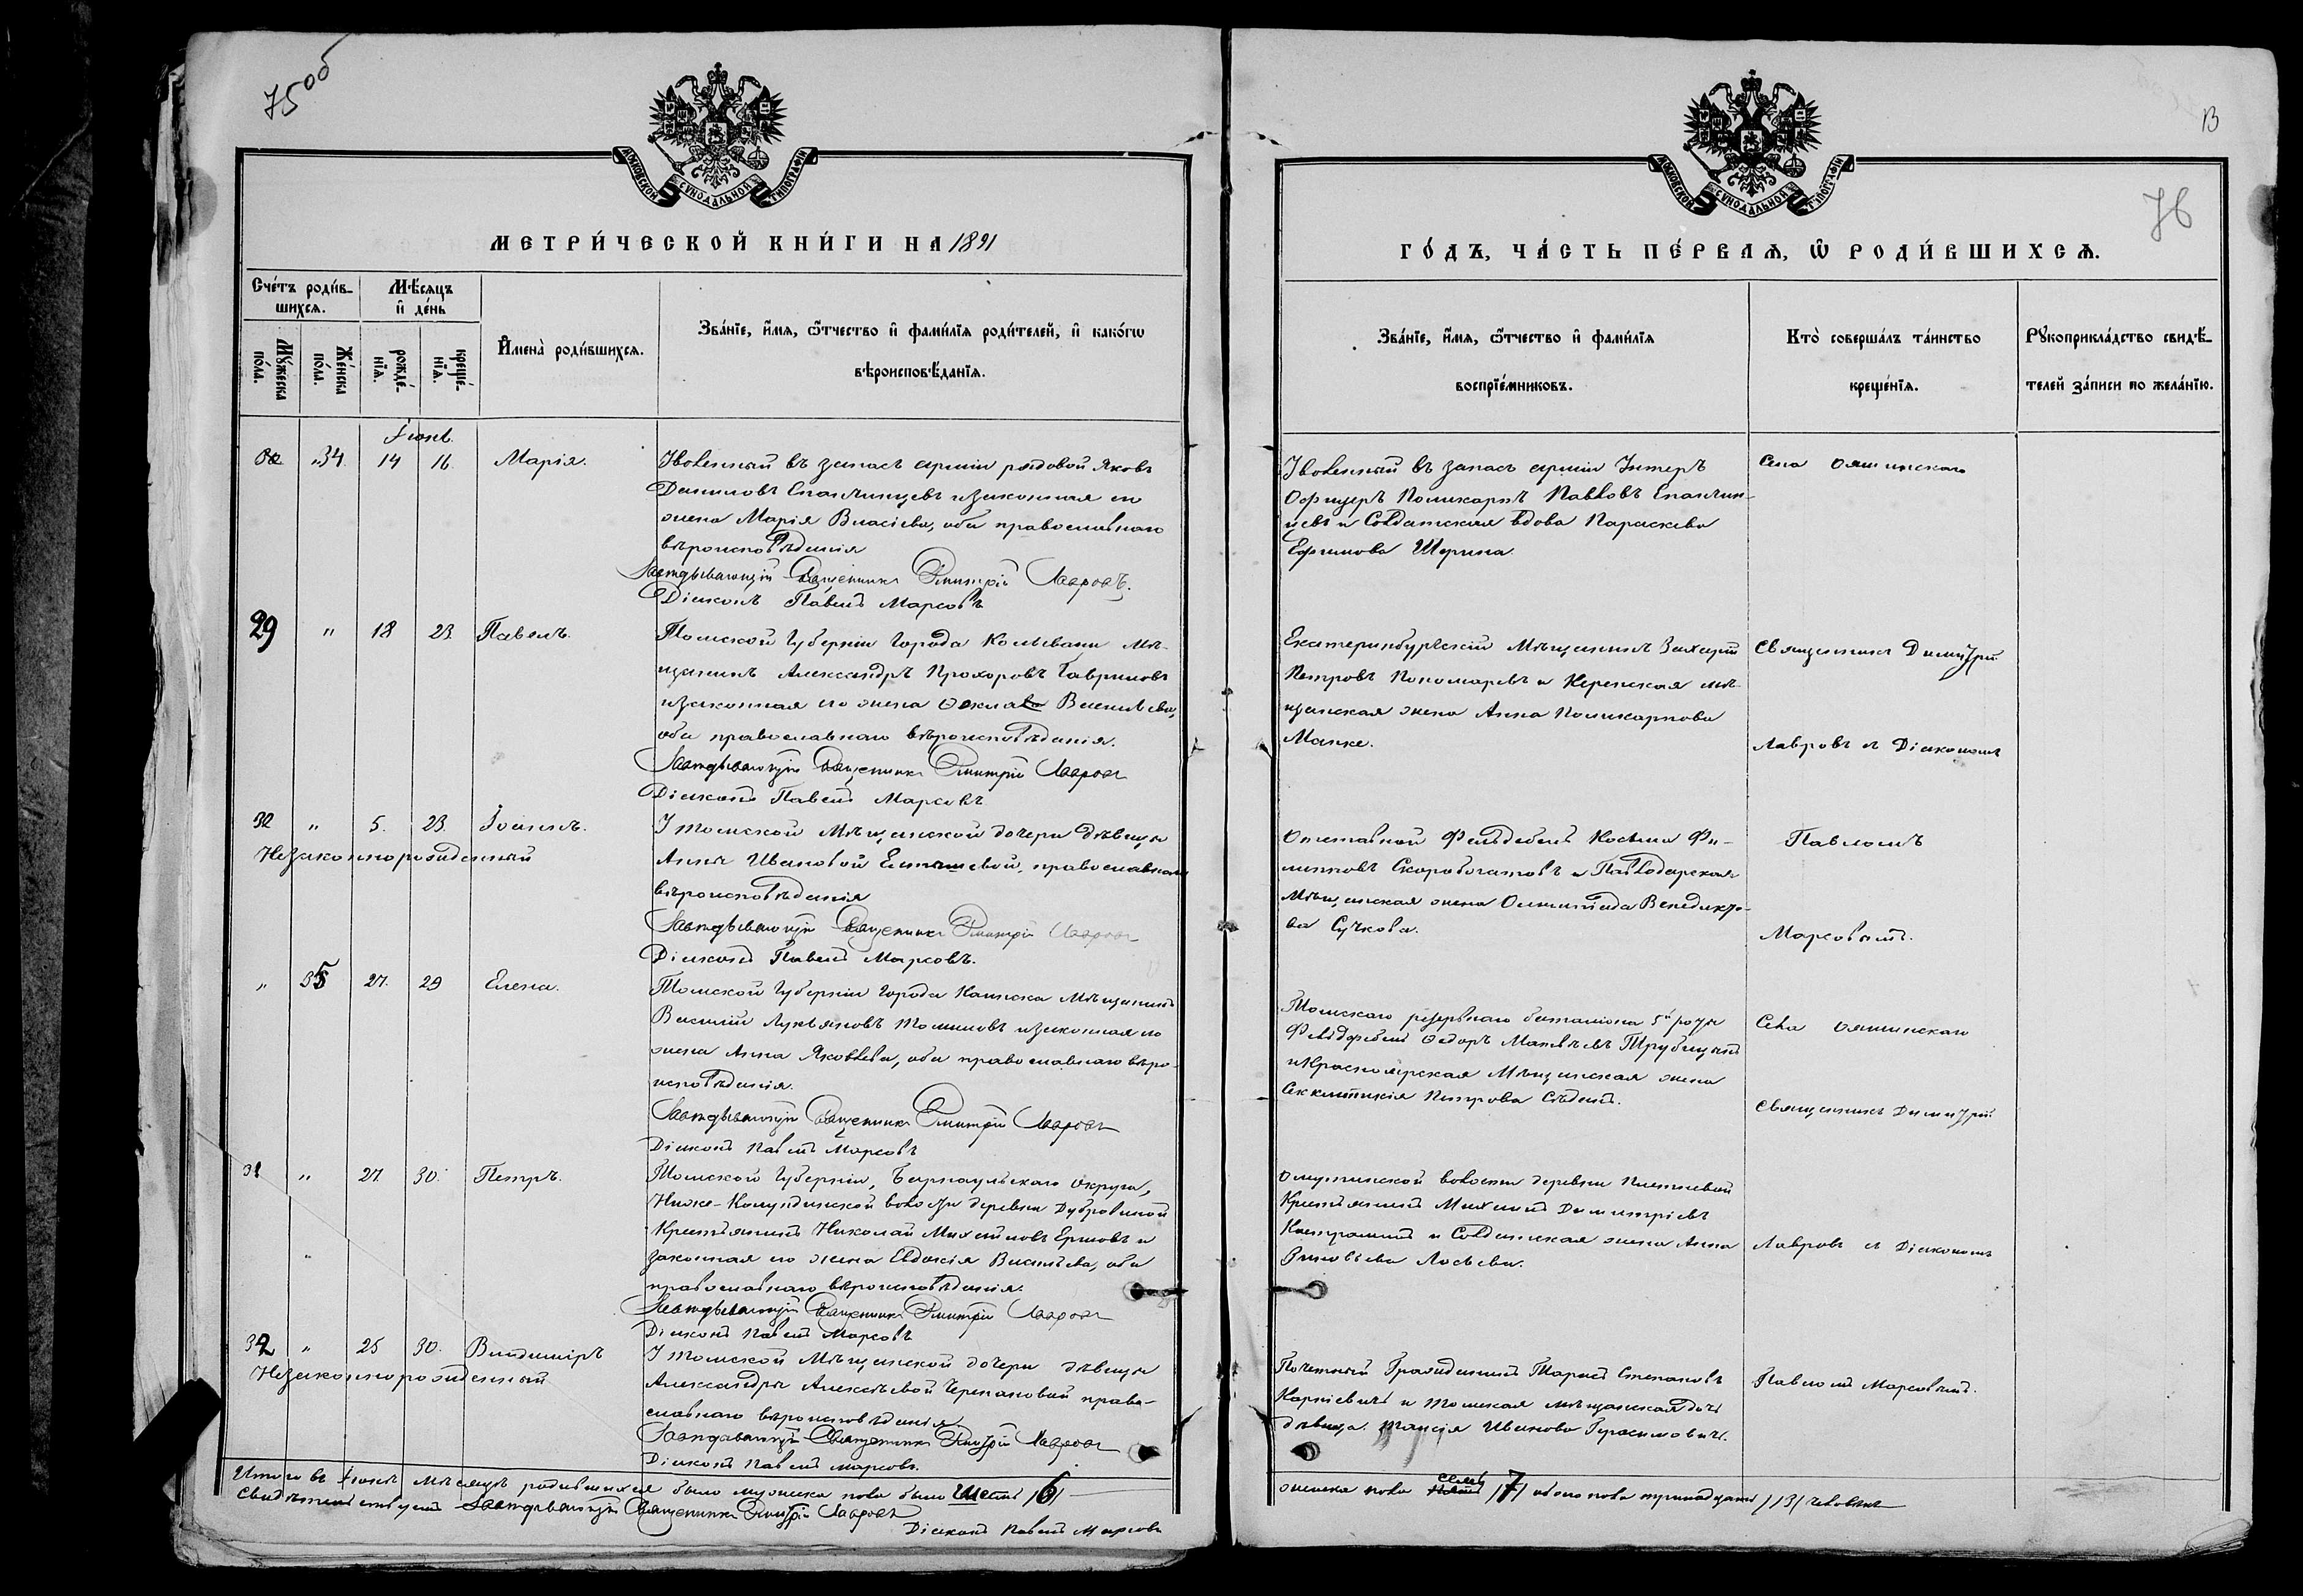 75об
МОСКОВСКОЙ СѴНОДАЛЬНОЙ ТИПОГРАФІИ
МЕТРИ́ЧЕСКОЙ КНИ́ГИ НА 1891
Сче́тъ роди́в-
шихсѧ.
Мѣ́сѧцъ
и҆ де́нь
Мꙋ́жеска
по́ла.
Же́нска
по́ла.
рожде́-
нїѧ.
креще́-
нїѧ.
И҆мена̀ роди́вшихсѧ.
Зва́нїе, и҆́мѧ, ѻ҆́тчество и҆ фами́лїѧ роди́телей, и҆ како́гѡ
вѣроисповѣ́данїѧ.
Іюнь.
34 14 16. Марія.
Уволенный въ запасъ арміи рядовой Яковъ
Даниловъ Епанчинцевъ и законная его
жена Марія Власіева, оба православнаго
вѣроисповѣданія
Завѣдывающій Священникъ Димитрій Лавровъ.
Діаконъ Павелъ Марсовъ
29 " 18 23. Павелъ.
Томской Губерніи Города Колывани Мѣ-
щанинъ Александръ Прохоровъ Гавриловъ
и законная его жена Ѳекла Васильева,
оба православнаго вѣроисповѣданія.
Завѣдывающій Священникъ Димитрій Лавровъ
Діаконъ Павелъ Марсовъ
" 5. 23. Іоаннъ.
Незаконнорожденный
У томской Мѣщанской дочери дѣвицы
Анны Ивановой православнаго
вѣроисповѣданія
Завѣдывающій Священникъ Димитрій Лавровъ
Діаконъ Павелъ Марсовъ.
" 35 27. 29 Елена.
Томской Губерніи Города Каинска Мѣщанинъ
Василій Лукьяновъ Томиловъ и законная его
жена Анна Яковлева, оба православнаго вѣро-
исповѣданія.
Завѣдывающій Священникъ Димитрій Лавровъ
Діаконъ Павелъ Марсовъ
31 " 27. 30. Петръ.
Томской Губерніи, Барнаульскаго Округа,
Ниже-Кулундинской волости деревни Дубровиной
Крестьянинъ Николай Михайловъ Ершовъ и
законная его жена Евдокія Васильева, оба
православнаго вѣроисповѣданія.
Завѣдывающій Священникъ Димитрій Лавровъ
Діаконъ Павелъ Марсовъ
32 " 25 30. Владиміръ
Незаконнорожденный
У томской Мѣщанской дочери дѣвицы
Александры Алексѣевой Черепановой право-
славнаго вѣроисповѣданія
Завѣдывающій Священникъ Димитрій Лавровъ
Діаконъ Павелъ Марсовъ.
Итого въ Іюнѣ мѣсяцѣ родившихся было мужеска пола было шесть /6/
Свидѣтельствуетъ Завѣдывающій Священникъ Димитрій Лавровъ
Діаконъ Павелъ Марсовъ
В
76
МОСКОВСКОЙ СѴНОДАЛЬНОЙ ТИПОГРАФІИ
ГО́ДЪ, ЧА́СТЬ ПЕ́РВАѦ, Ѡ҆ РОДИ́ВШИХСѦ.
Зва́нїе, и҆́мѧ, ѻ҆́тчество и҆ фами́лїѧ
воспрїе́мниковъ.
Кто̀ соверша́лъ та́инство
креще́нїѧ.
Рꙋкоприкла́дство свидѣ́-
телей за́писи по жела́нїю.
Уволенный въ запасъ арміи Унтеръ
Офицеръ Поликарпъ Павловъ Епанчин-
цевъ и Солдатская вдова Параскева
Ефимова Шерина.
Села Ояшинскаго
Екатеринбургскій Мѣщанинъ Захарій
Петровъ Пономаревъ и Керенская мѣ-
щанская жена Анна Поликарпова
Манке.
Священникъ Димитрій
Лавровъ съ Діакономъ
Отставной Фельдфебель Косьма Фи-
липповъ Скоробогатовъ и Павлодарская
Мѣщанская жена Олимпіада Венедикто-
ва Сучкова.
Павломъ
Марсовымъ.
Томскаго резервнаго баталіона 5й роты
Фельдфебель Ѳедоръ Матвѣевъ Трубицынъ
и Красноярская Мѣщанская жена
Петрова
Села Ояшинскаго
Священникъ Димитрій
волости деревни
Крестьянинъ Михаилъ Димитріевъ
и Солдатская жена Анна
Зиновьева Лосева.
Лавровъ съ Діакономъ
Почетный Гражданинъ Степановъ
и Томская мѣщанская дочь
дѣвица Таисія Иванова Герасимовичъ.
Павломъ Марсовымъ.
женска пола семь /7/ обоего пола тринадцать /13/ человѣкъ